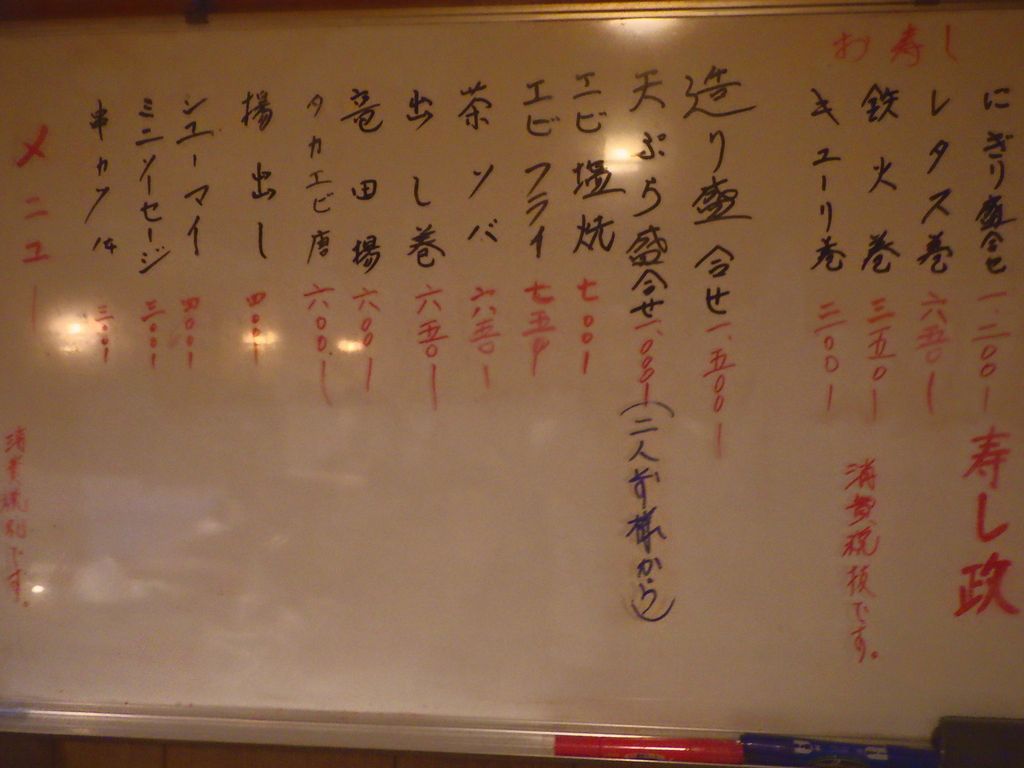 お寿し
にぎり盛合せ 一、二〇〇ー
レタス巻 六五〇ー
鉄火巻 三五〇ー
キューリ巻 三〇〇ー
寿し政
消費税抜です。
造り盛合せ 一、五〇〇ー
天ぷら盛合せ 一、〇〇〇ー(二人前様から)
エビ塩焼 七〇〇ー
エビフライ 七五〇
茶ソバ 六五〇ー
出し巻 六五〇ー
竜田場 六〇〇ー
タカエビ唐 六〇〇ー
揚出し 四〇〇ー
シューマイ 四〇〇ー
ミニソーセージ 三〇〇ー
串カツ 三〇〇ー
メニュー
消費税別です。